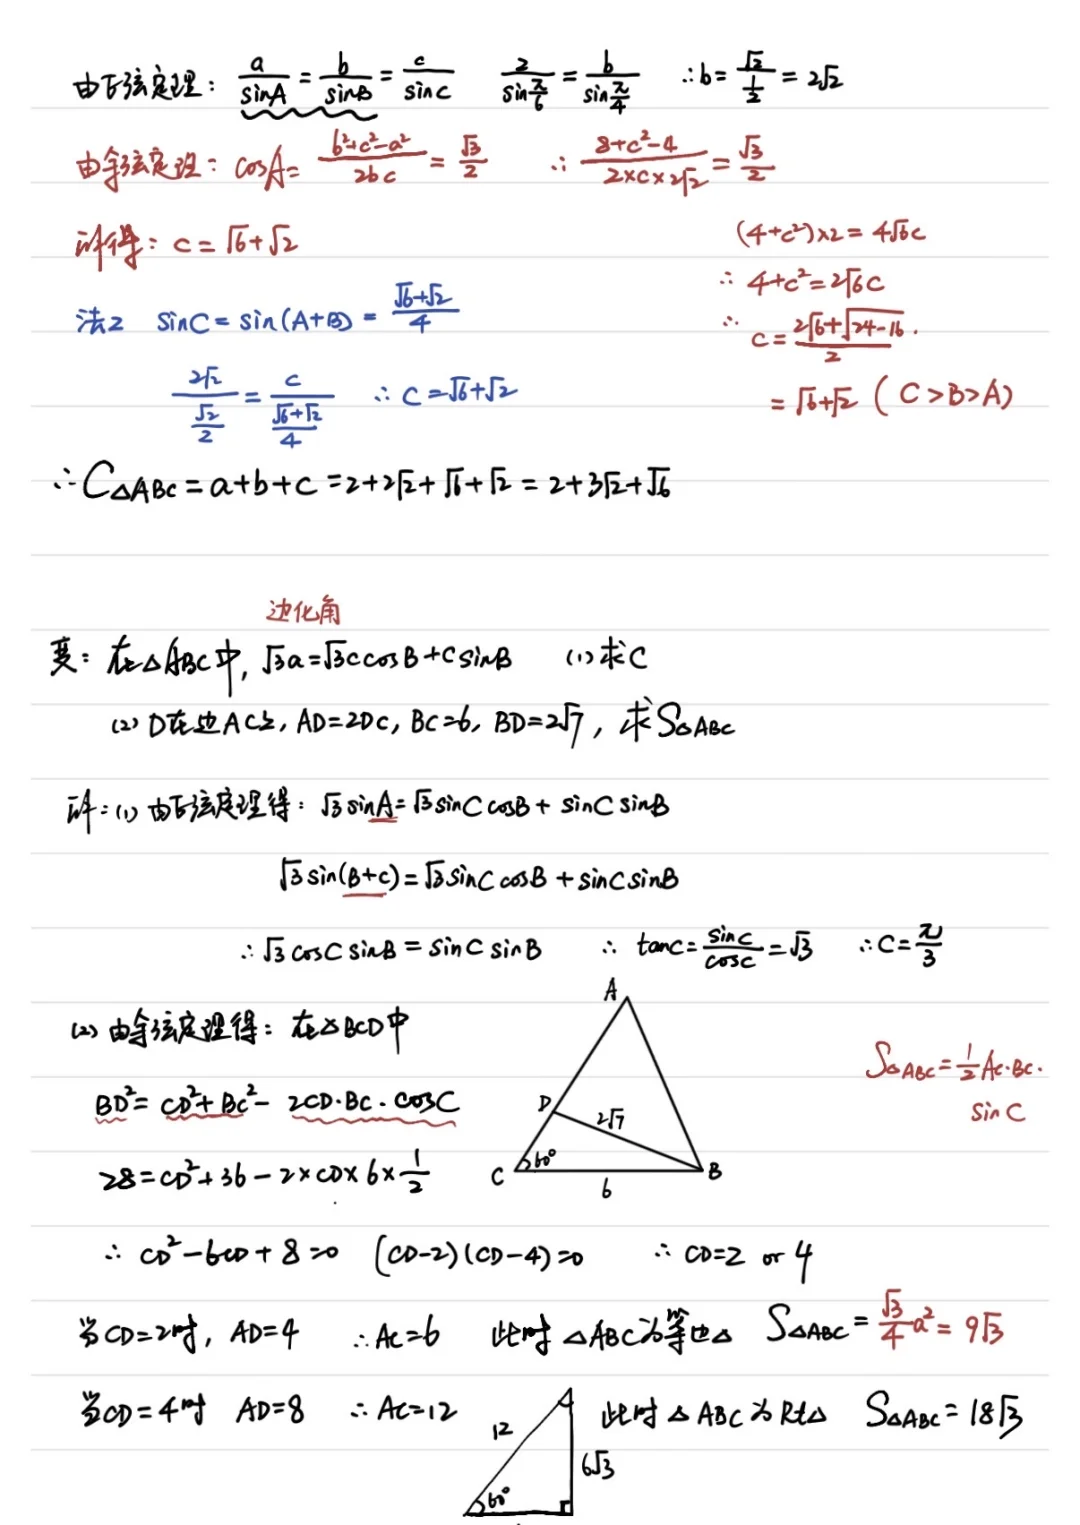 由正弦定理: a/sinA = b/sinB = c/sinC  2/sin π/6 = b/sin π/4  ∴b = √2/(1/2) = 2√2
由余弦定理: cosA = (b²+c²-a²)/2bc = √3/2  ∴ (8+c²-4)/(2×c×2√2) = √3/2
解得: c = √6+√2
(4+c²)×2 = 4√6c
∴ 4+c² = 2√6c
∴ c = (2√6+√(24-16))/2.
= √6+√2 (C>B>A)
法2 sinC = sin(A+B) = (√6+√2)/4
2√2/(√2/2) = c/((√6+√2)/4)  ∴ C = √6+√2
∴ C△ABC = a+b+c = 2+2√2+√6+√2 = 2+3√2+√6
边化角
变: 在△ABC中, √3a = √3ccosB+csinB (1)求C
(2) D在边AC上, AD=2DC, BC=6, BD=2√7, 求S△ABC
解:(1) 由正弦定理得: √3sinA = √3sinCcosB + sinCsinB
√3sin(B+C) = √3sinCcosB + sinCsinB
∴ √3cosCsinB = sinCsinB  ∴ tanC = sinC/cosC = √3  ∴C = π/3
(2) 由余弦定理得: 在△BCD中
BD² = CD²+BC² - 2CD·BC·cosC
28 = CD²+36-2×CD×6×1/2
A
D
2√7
C
60°
B
6
S△ABC = 1/2 AC·BC·
sinC
∴ CD²-6CD+8=0 (CD-2)(CD-4)=0 ∴ CD=2 or 4
当CD=2时, AD=4 ∴AC=6 此时△ABC为等边△ S△ABC = √3/4 a² = 9√3
当CD=4时 AD=8 ∴ AC=12 此时△ABC为Rt△ S△ABC = 18√3
12
6√3
60°